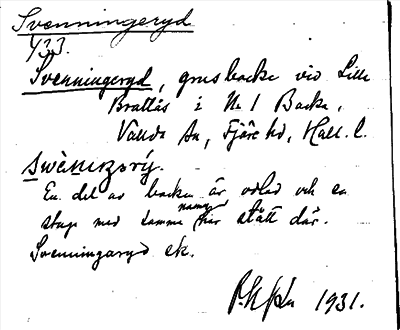 Svenningeryd
433.
Svenningeryd, grusbacke vid Lille
Brattås i Nr 1 Backa,
Vallda sn, Fjäre hd, Hall. l.
En del av backen är odlad och en
stuga med samma namn har stått där.
Svenningaryd ek.
1931.